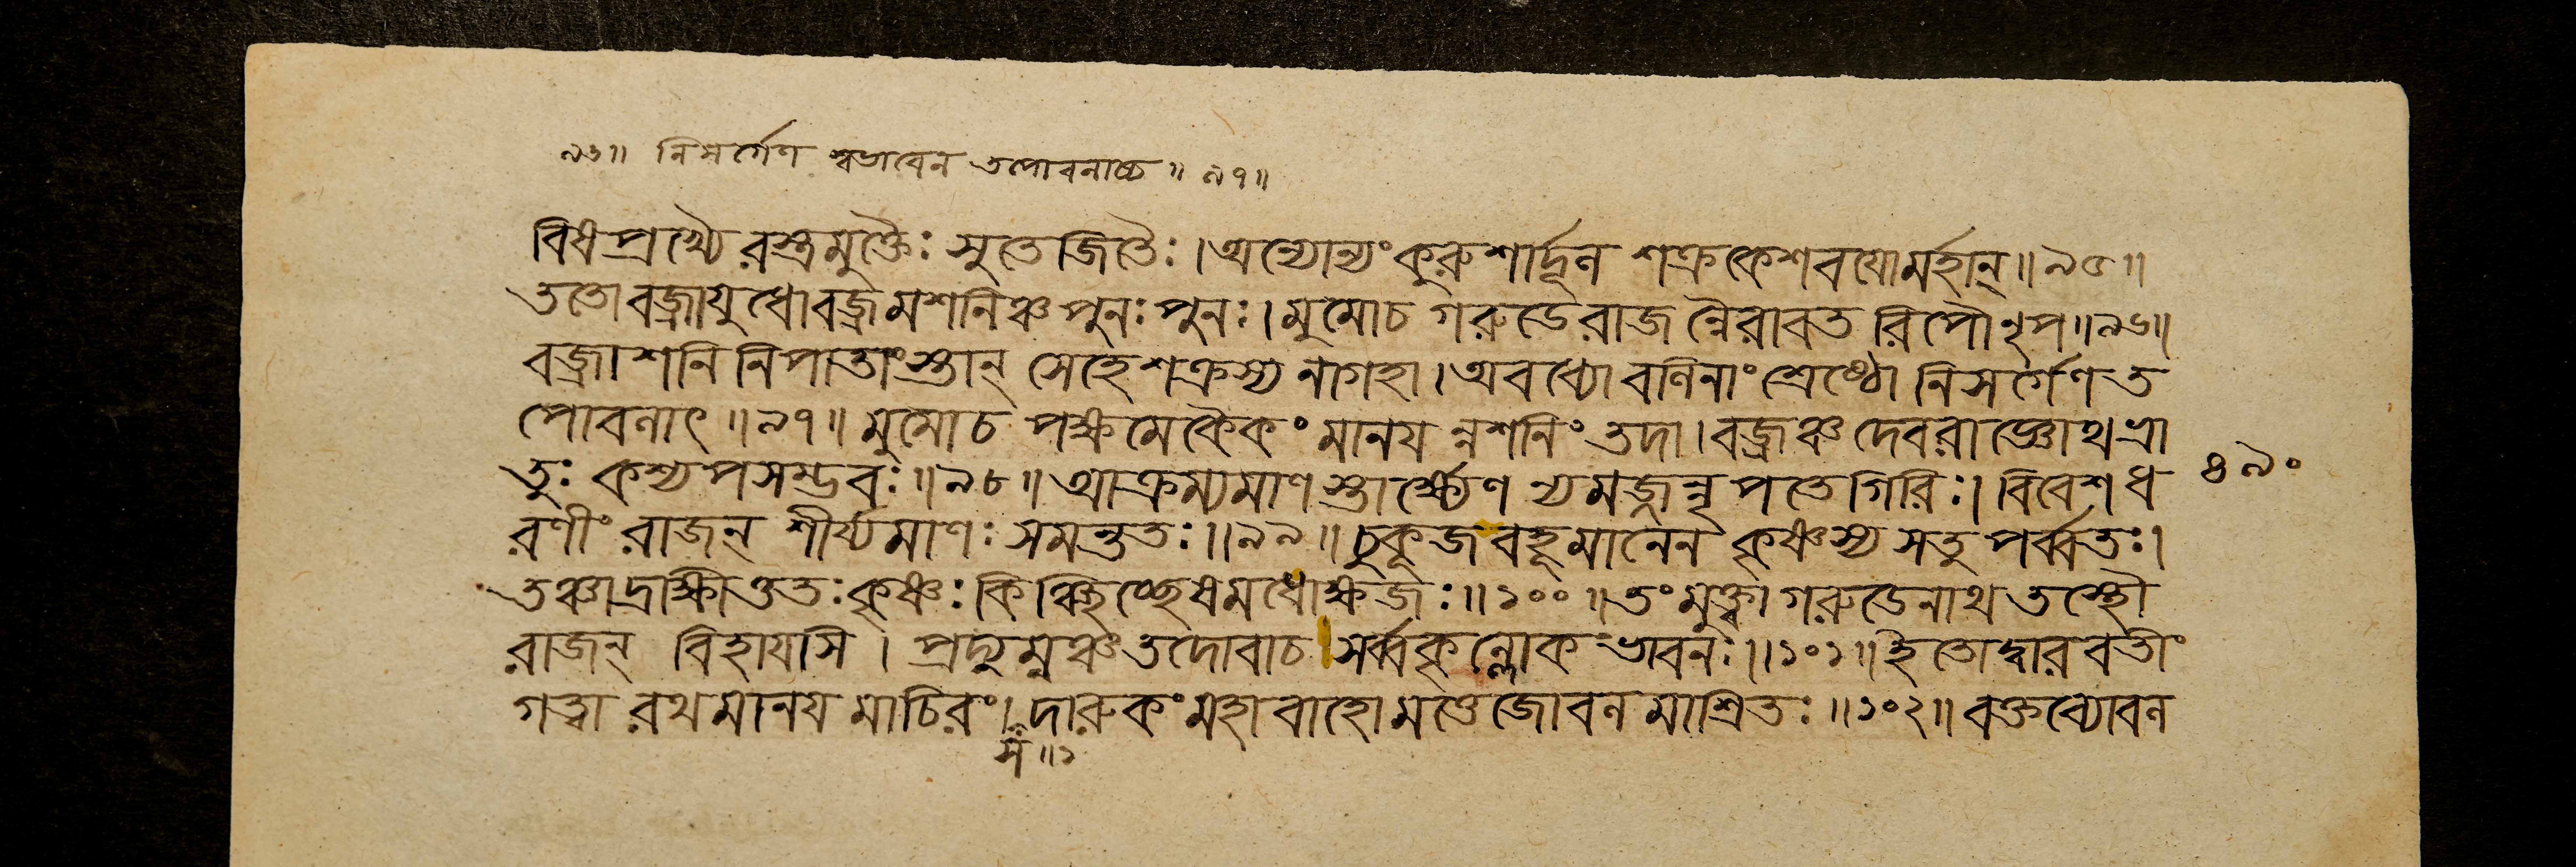 ৯৬॥ নিসর্গেণ স্বভাবেন তপোবনাচ্চ ॥ ৯৭॥
বিধপ্রখ্যৈ রস্ত্রমুক্তৈঃ সুতেজিতৈঃ।অন্যোন্যং কুরুশার্দূল শক্রকেশবয়োর্মহান্॥৯৫॥
ততোবজ্রায়ুধোবজ্রমশনিঞ্চ পুনঃ পুনঃ।মুমোচ গরুডেরাজ ন্নৈরাবত রিপৌনৃপ॥৯৬॥
বজ্রাশনি নিপাতাংস্তান্ সেহে শক্রস্য নাগহা।অবধ্যো বলিনাং শ্রেষ্ঠো নিসর্গেণ ত
পোবলাৎ॥৯৭॥মুমোচ পক্ষমেকৈকং মানয ন্নশনিং তদা।বজ্রঞ্চ দেবরাজ্ঞোথ ভ্রা
তুঃ কশ্যপসম্ভবঃ॥৯৮॥আক্রম্যমাণ স্তার্ক্ষ্যেণ ন্যমজ্জন্নৃ পতে গিরিঃ।বিবেশ ধ
৪৯০
রণীং রাজন্ শীর্য্যমাণঃ সমন্ততঃ॥৯৯॥চুকূজ বহূমানেন কৃষ্ণস্য সতু পর্ব্বতঃ।
তঞ্চাদ্রাক্ষীত্ততঃ কৃষ্ণঃ কিঞ্চিচ্ছেষমধোক্ষজঃ॥১০০॥তং মুক্ত্বা গরুডেনাথ তস্থৌ
রাজন্ বিহায়সি। প্রদ্যুম্নঞ্চ তদোবাচ সর্ব্বকৃল্লোক ভাবনঃ॥১০১॥ইতোদ্বারবতীং
গত্বা রথমানয মাচিরং।দারুকং মহাবাহো মত্তেজোবল মাশ্রিতঃ॥১০২॥বক্তব্যোবল